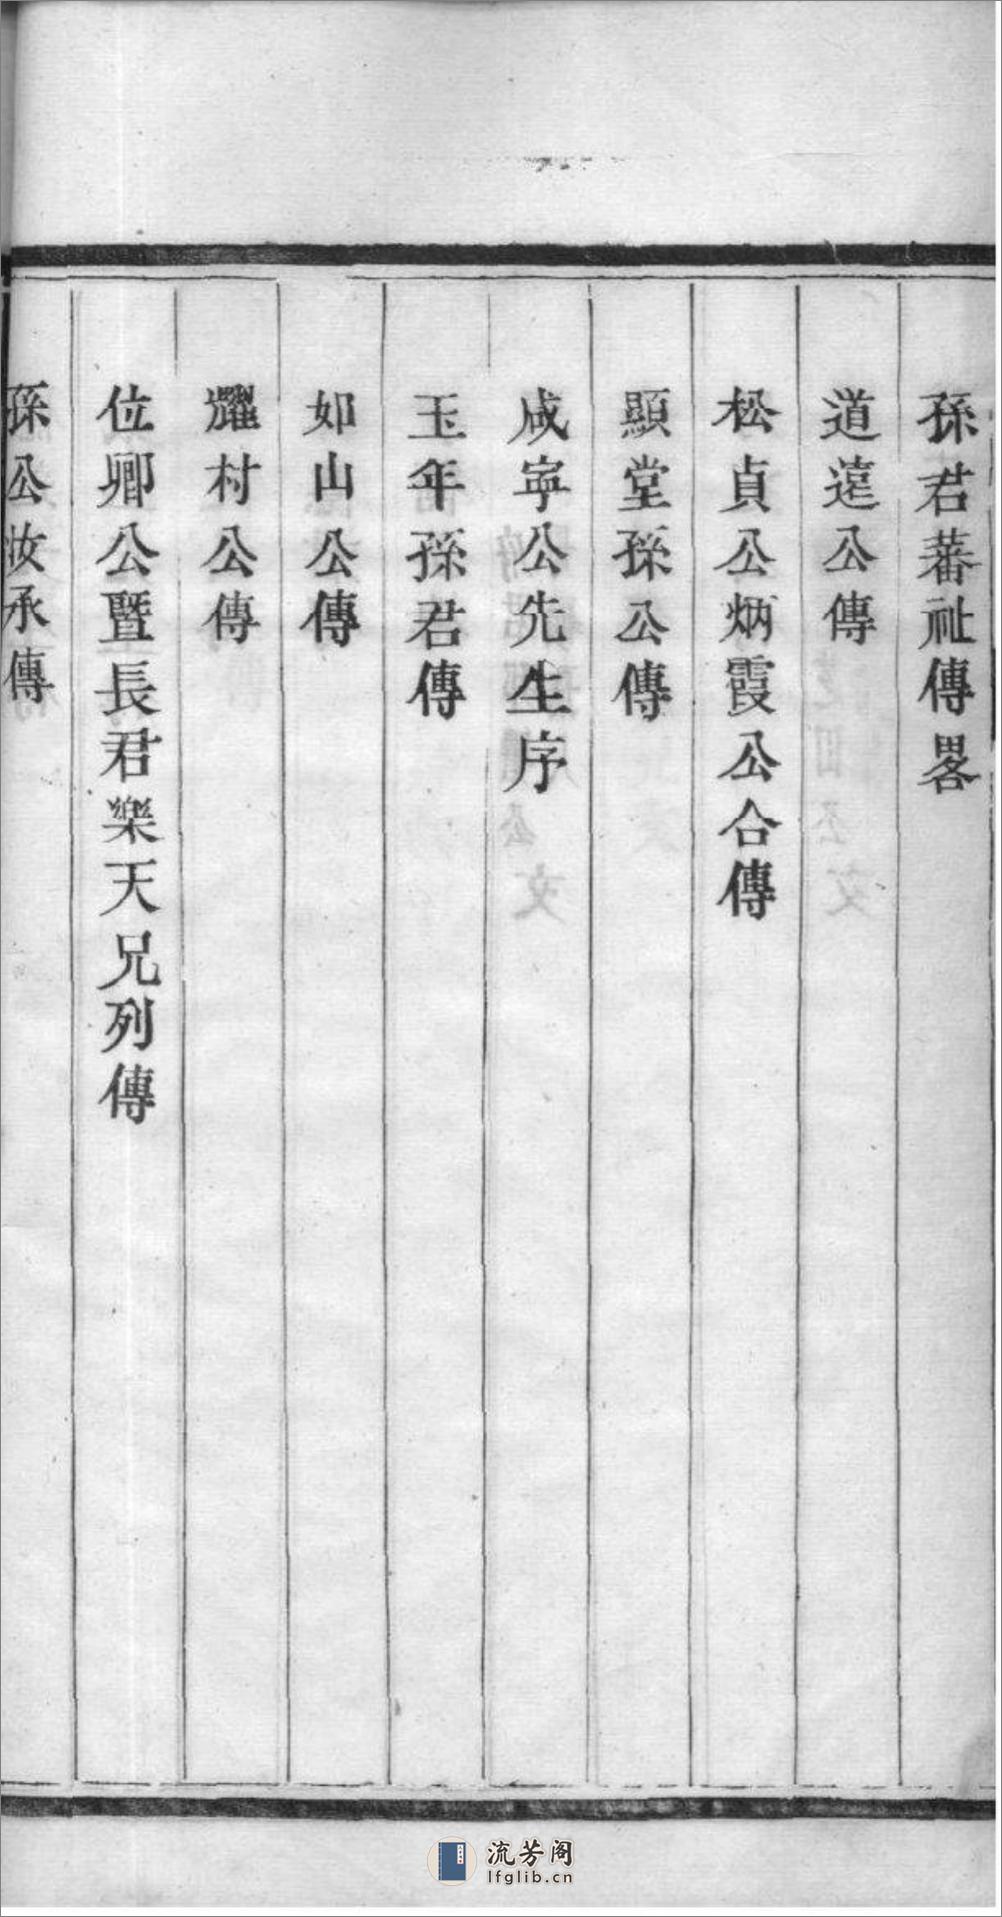 孫君蕃祉傳畧
道遠公傳
松貞公炳霞公合傳
顯堂孫公傳
咸寧公先生序
玉年孫君傳
如山公傳
耀村公傳
位卿公暨長君樂天兄列傳
孫公汝承傳
流芳阁
lfglib.cn